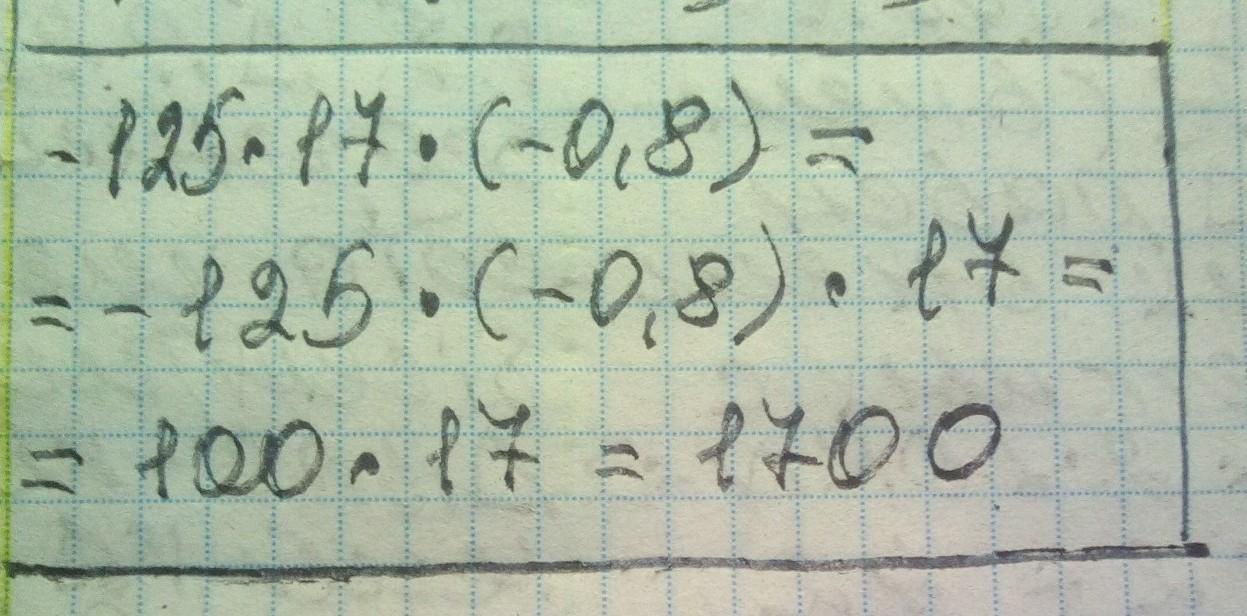 -125·17·(-0,8)=
=-125·(-0,8)·17=
=100·17=1700